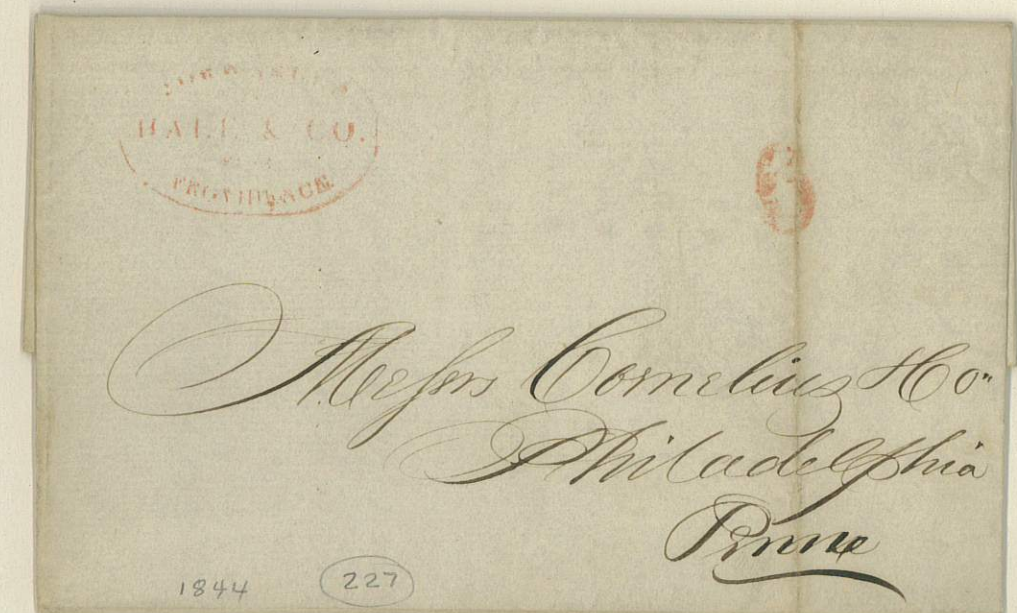 HALE & CO.
PROVIDENCE
Messrs Cornelius & Co
Philadelphia
Penna
1844 227